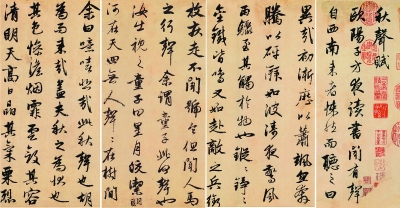 秋聲賦
歐陽子方夜讀書聞有聲
自西南来者悚然而聽之曰
異哉初淅瀝以蕭颯忽奔
騰以砰湃如波濤夜驚風
雨驟至其觸於物也鏦々錚々
金鐵皆鳴又如赴敵之兵銜
枚疾走不聞號令但聞人馬
之行聲余謂童子此何聲也
汝出視之童子曰星月皎潔明
河在天四無人聲々在樹間
余曰噫嘻悲哉此秋聲也胡
為而来哉盖夫秋之為狀也
其色慘澹烟霏雲斂其容
清明天高日晶其氣栗烈